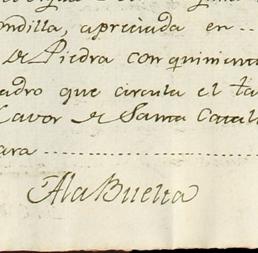 ondilla, apreciada en ..
de Piedra con quinient
uadro que circula el ta
Lavor de Santa Catali
ara ..............................
A la Buelta